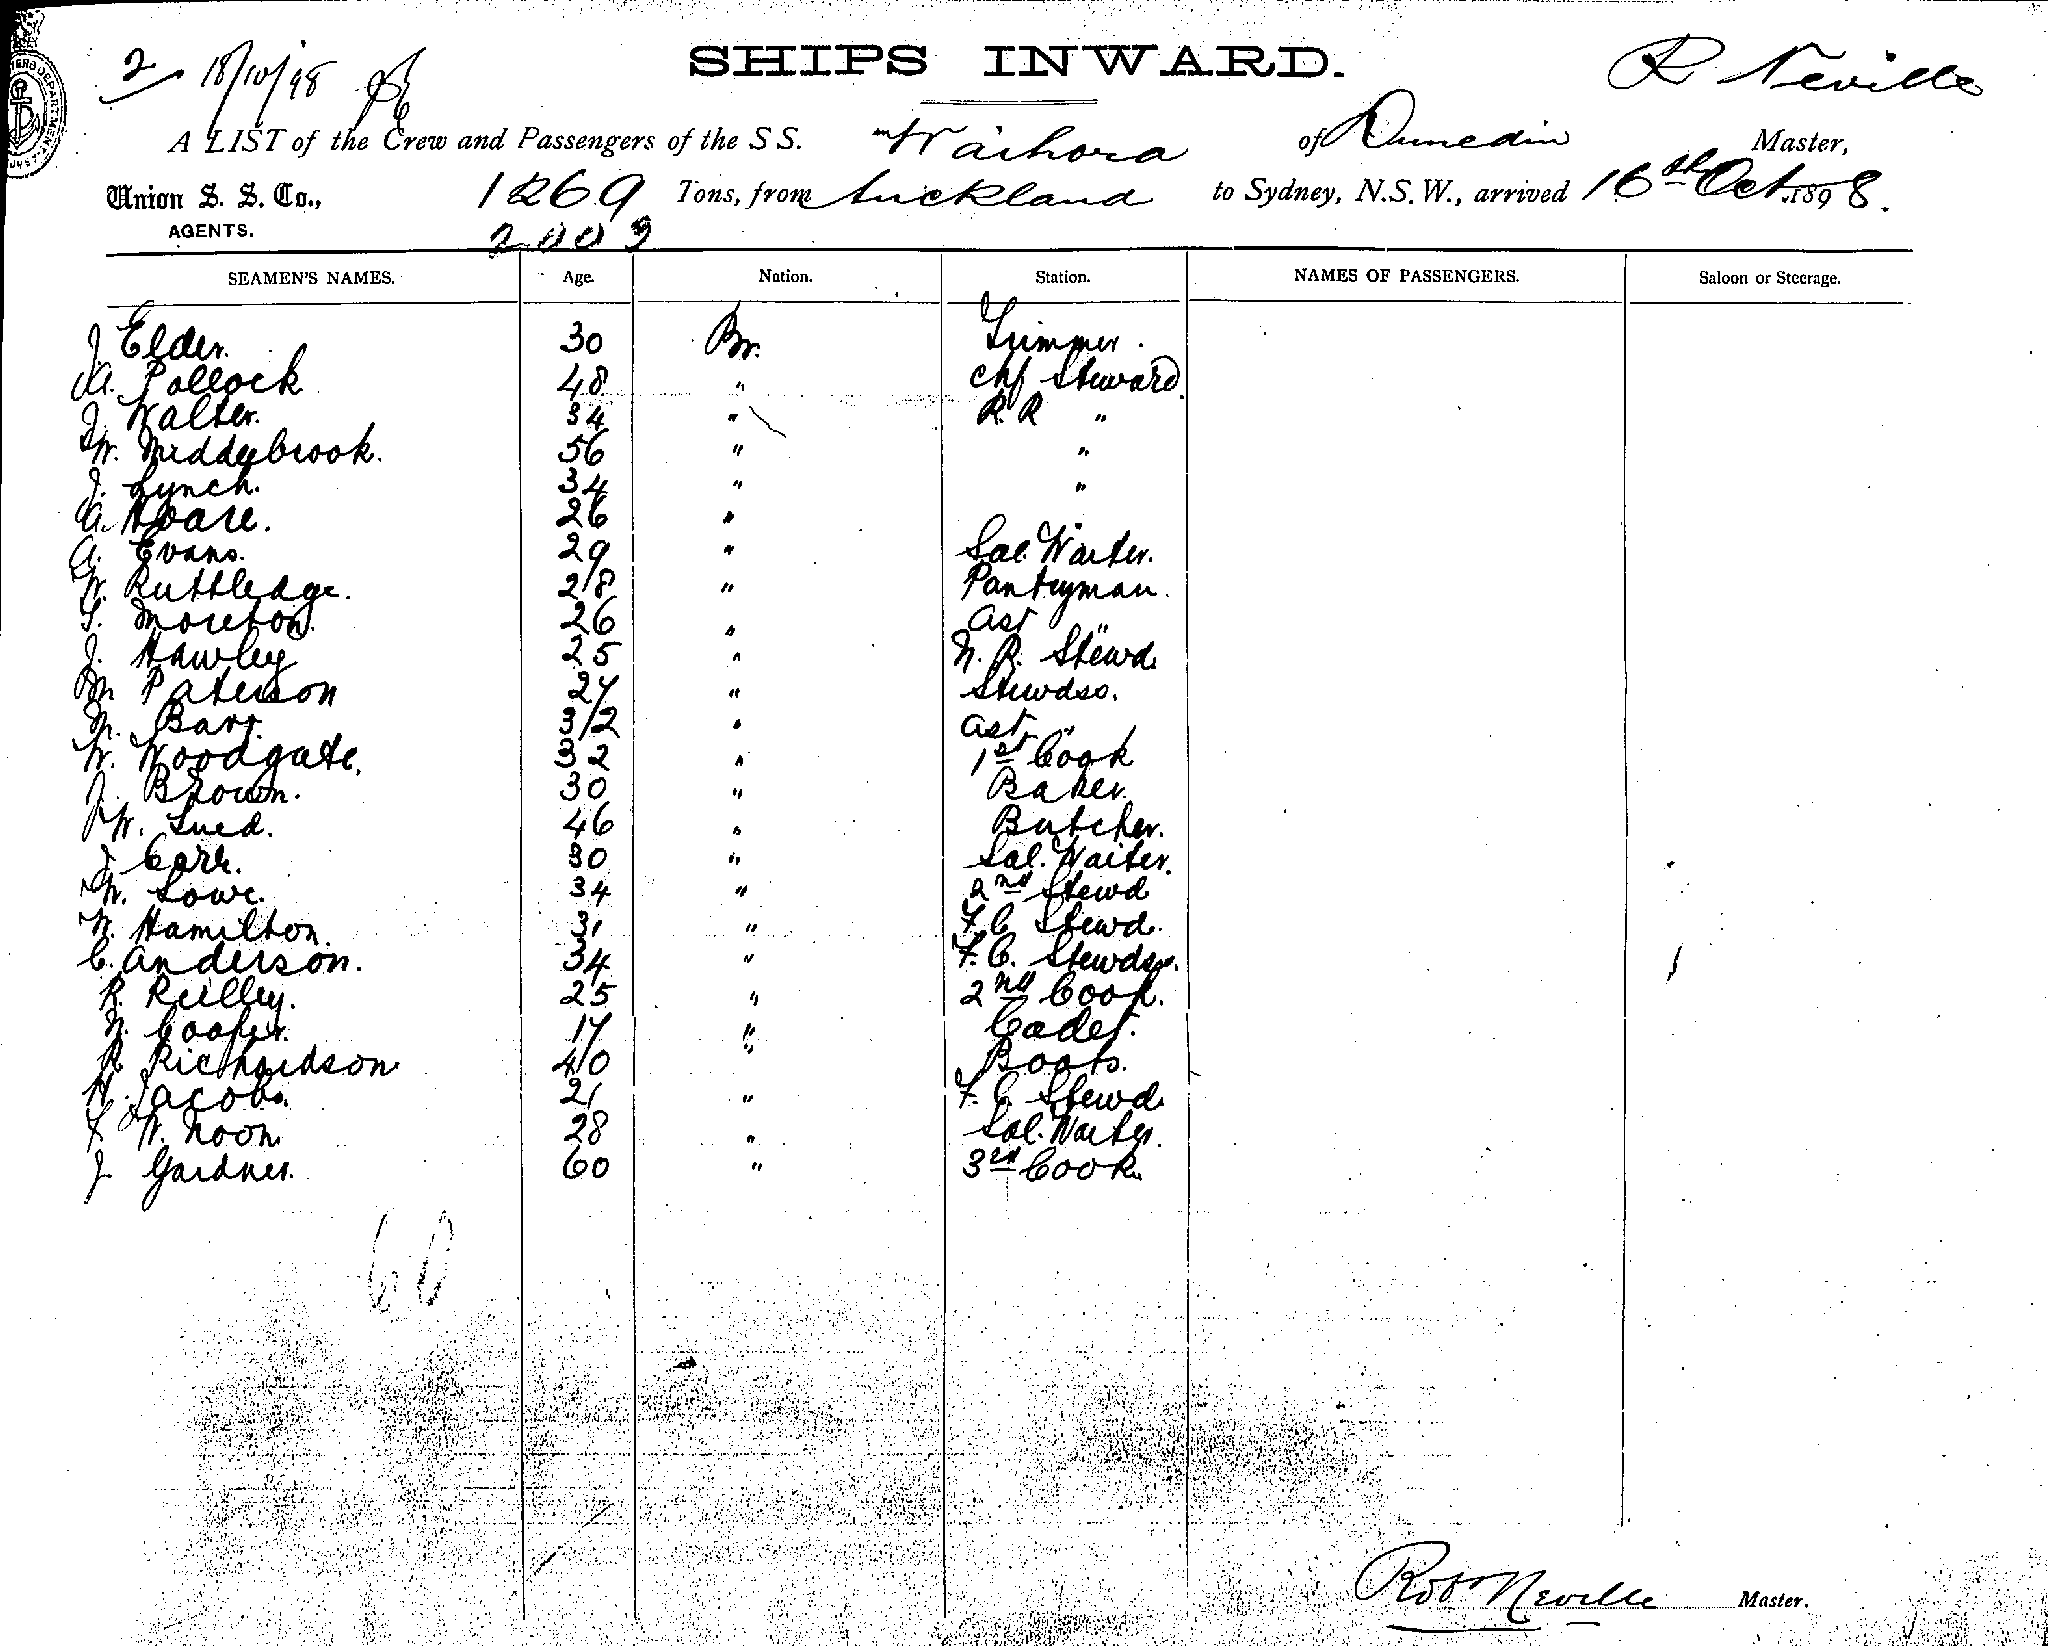 SHIPS INWARD.
2 18/10/98
R Neville
A LIST of the Crew and Passengers of the S S. Waihora of Dunedin Master,
Union S. S. Co., 1269 Tons, from Auckland to Sydney, N.S.W., arrived 16th Oct. 1898.
AGENTS. 2003
SEAMEN'S NAMES. Age. Nation. Station. NAMES OF PASSENGERS. Saloon or Steerage.
J Elder. 30 Br. Trimmer.
A. Pollock 48 " Chf Steward
J Walter. 34 " R. R "
W. Middybrook. 56 " "
J. Lynch. 34 " "
A. Hoare. 26 " "
A. Evans. 29 " Sal. Waiter.
W. Ruttledge. 28 " Pantryman.
S. Moreton. 26 " Ast "
J. Hawley 25 " N. R. Stewd.
M. Paterson 27 " Stewdss.
Barr. 32 " Ast "
W. Woodgate. 32 " 1st Cook
J. Brown. 30 " Baker.
W. Lued. 46 " Butcher.
J Carr. 30 " Sal. Waiter.
W. Lowe. 34 " 2nd Stewd
W. Hamilton. 31 " F. C Stewd.
C. Anderson. 34 " F. C. Stewdss.
R. Reilley. 25 " 2nd Cook.
N. Cooper. 17 " Cadet.
R Richardson 40 " Boots.
H. Jacobs. 21 " F. C. Stewd.
F W. Noon 28 " Sal. Waiter.
J Gardner. 60 " 3rd Cook.
60
Robt Neville Master.